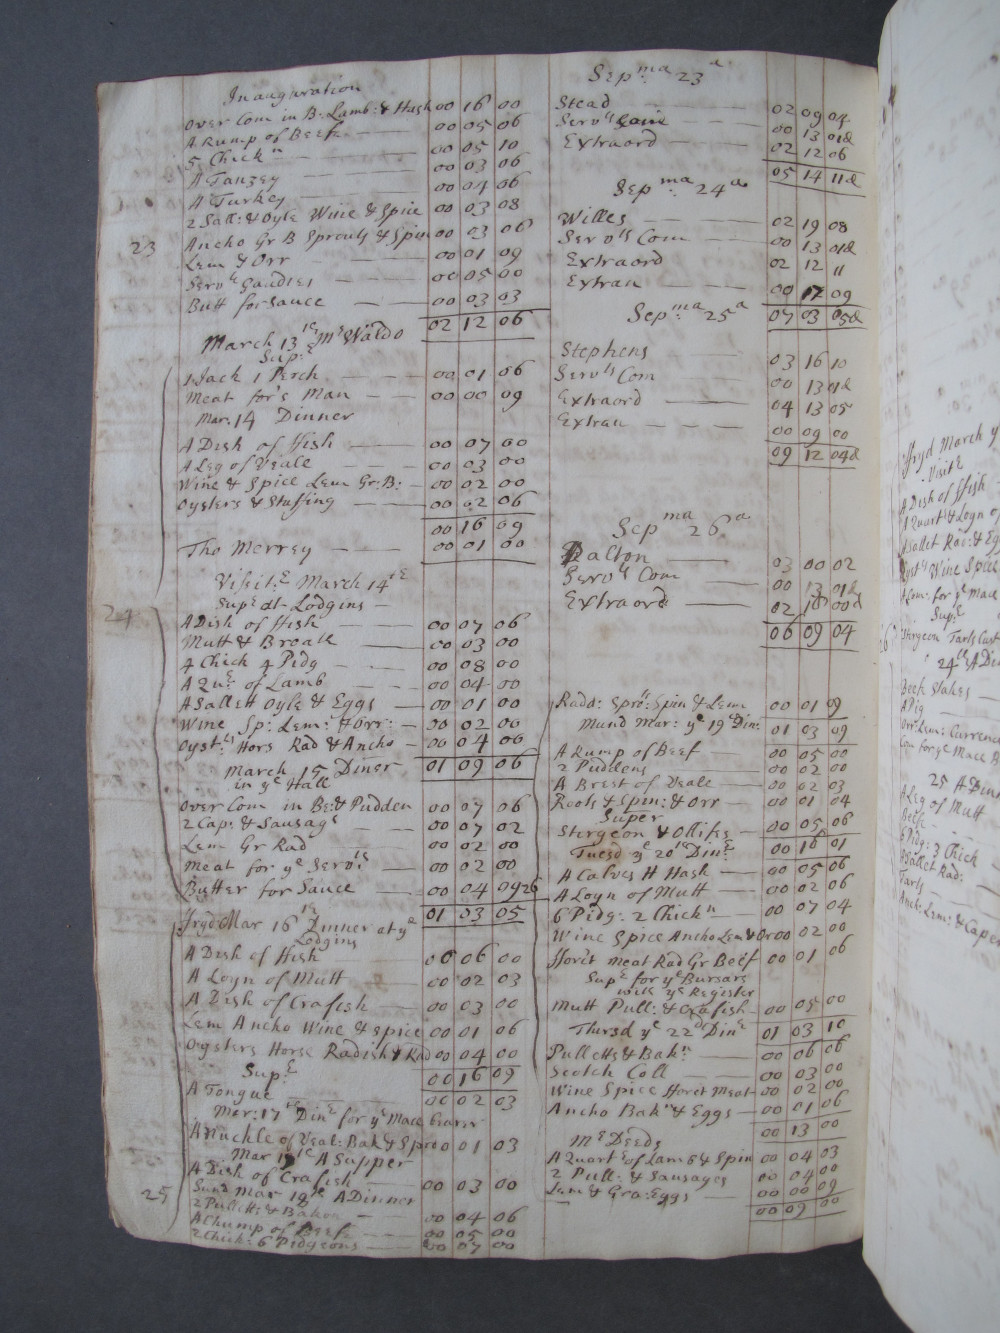 Inauguration
Over Com in B: Lamb: & Hash 00 16 00
A Rump of Beefe 00 05 06
5 Chickn 00 05 10
A Tanzey 00 03 06
A Turkey 00 04 06
2 Sall: & Oyle Wine & Spice 00 03 08
23 Ancho Gr B Sprouts & Spin 00 03 06
Lem & Orr 00 01 09
Servts Gaudies 00 05 00
Butt for Sauce 00 03 03
02 12 06
March 13 Mr Waldo
Supr
1 Jack 1 Perch 00 01 06
Meat for's Man 00 00 09
Mar: 14 Dinner
A Dish of ffish 00 07 00
A Leg of Veale 00 03 00
Wine & Spice Lem Gr: B: 00 02 00
Oysters & Stuffing 00 02 06
00 16 09
Tho Merrey 00 01 00
Visitt March 14th
Supr at Lodgins
24 A Dish of ffish 00 07 06
Mutt & Broath 00 03 00
4 Chick 4 Pidg 00 08 00
A Qur of Lamb 00 04 00
A Sallett Oyle & Eggs 00 01 00
Wine Sp: Lem: & Orr: 00 02 00
Oystrs Hors Rad & Ancho 00 04 00
01 09 06
March 15 Diner
in ye Hall
Over Com in Be: & Pudden 00 07 06
2 Cap: & Sausags 00 07 02
Lem Gr Rad 00 02 00
Meat for ye Servts 00 02 00
Butter for Sauce 00 04 09
01 03 05
ffryd Mar 16th Dinner at ye
Lodgins
A Dish of ffish 00 06 00
A Loyn of Mutt 00 02 03
A Dish of Crafish 00 03 00
Lem Ancho Wine & Spice 00 01 06
Oysters Horse Radish & Rad 00 04 00
00 16 09
Supr
A Tongue 00 02 03
Mar: 17th Dinr for ye Mace bearer
A Knuckle of Veal: Bak & Spro 00 01 03
Mar 17th A Supper
A Dish of Crafish 00 03 00
25 Sund Mar 18th A Dinner
2 Pulletts & Bakon 00 04 06
A Chump of Beefe 00 05 00
2 Chick: 6 Pidgeons 00 07 00
Sepma 23a
Stead 02 09 04
Servts Com 00 13 01d
Extraord 02 12 06
05 14 11d
Sepma 24a
Willes 02 19 08
Servts Com 00 13 01d
Extraord 02 12 11
Extran 00 17 09
07 03 05d
Sepma 25a
Stephens 03 16 10
Servts Com 00 13 01d
Extraord 04 13 05
Extran 00 09 00
09 12 04d
Sepma 26a
Dalton 03 00 02
Servts Com 00 13 01d
Extraord 02 16 00d
06 09 04
Radd: Spro: Spin & Lem 00 01 09
Mund Mar: ye 19 Din: 01 03 09
A Rump of Beef 00 05 00
2 Puddens 00 02 00
A Brest of Veale 00 02 03
Roots & Spin: & Orr 00 01 04
Super
Sturgeon & Ollifes 00 05 06
Tuesd ye 20th Dinr 00 16 01
26 A Calves H Hash 00 05 06
A Loyn of Mutt 00 02 06
6 Pidg: 2 Chickn 00 07 04
Wine Spice Ancho Lem & Or 00 02 00
fforct meat Rad Gr Beef 00 01 06
Supr for ye Bursars
with ye Register
Mutt Pull: & Crafish 00 05 00
Thursd ye 22d Dinr 01 03 10
Pulletts & Bakn 00 06 06
Scotch Coll 00 03 00
Wine Spice fforct Meat 00 02 00
Ancho Bakn & Eggs 00 01 06
00 13 00
Mr Deeds
A Quartr of Lamb & Spin 00 04 03
2 Pull: & Sausages 00 04 00
Lem & Gra: Eggs 00 00 09
00 09 00
ffryd March y
Visitt
A Dish of ffish
A Quart & Loyn of
A Sallet Rad: & Eg
Oyst Wine Spice
Com: for ye Mace
Supr
26 Sturgeon Tarts Cust
24th A Din
Beefe Stakes
A Pig
Orr: Lem: Currence
Com for ye Mace B
25 A Dinn
A Leg of Mutt
Beefe
6 Pidg: 3 Chick
A Sallet Rad:
Tarts
Anch: Lem: & Caper